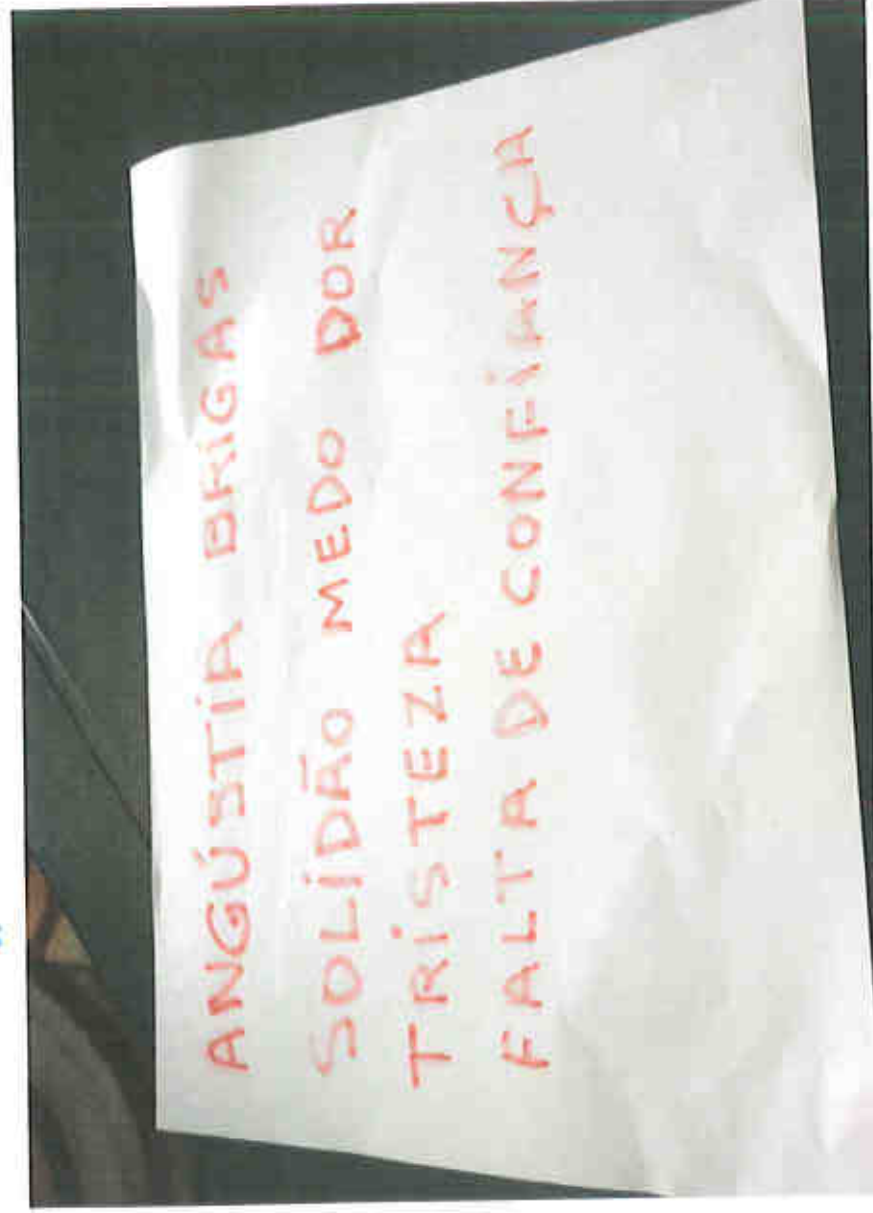 ANGÚSTIA BRIGAS
SOLIDÃO MEDO DOR
TRISTEZA
FALTA DE CONFIANÇA